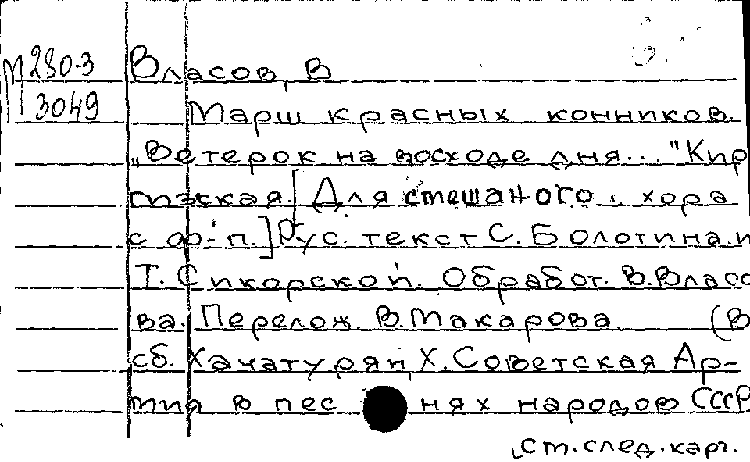 М280-3 Власов, В
3049 Марш красных конников.
"Ветерок на восходе дня..." Кир
гизская. [Для смешаного хора
с ф.-п.] Рус. текст С. Болотина и
Т. Сикорской. Обработ. В. Власо
ва. Перелож. В. Макарова (В
сб. Хачатурян, Х. Советская Ар-
мия в пес нях народов СССР
см. след. карт.